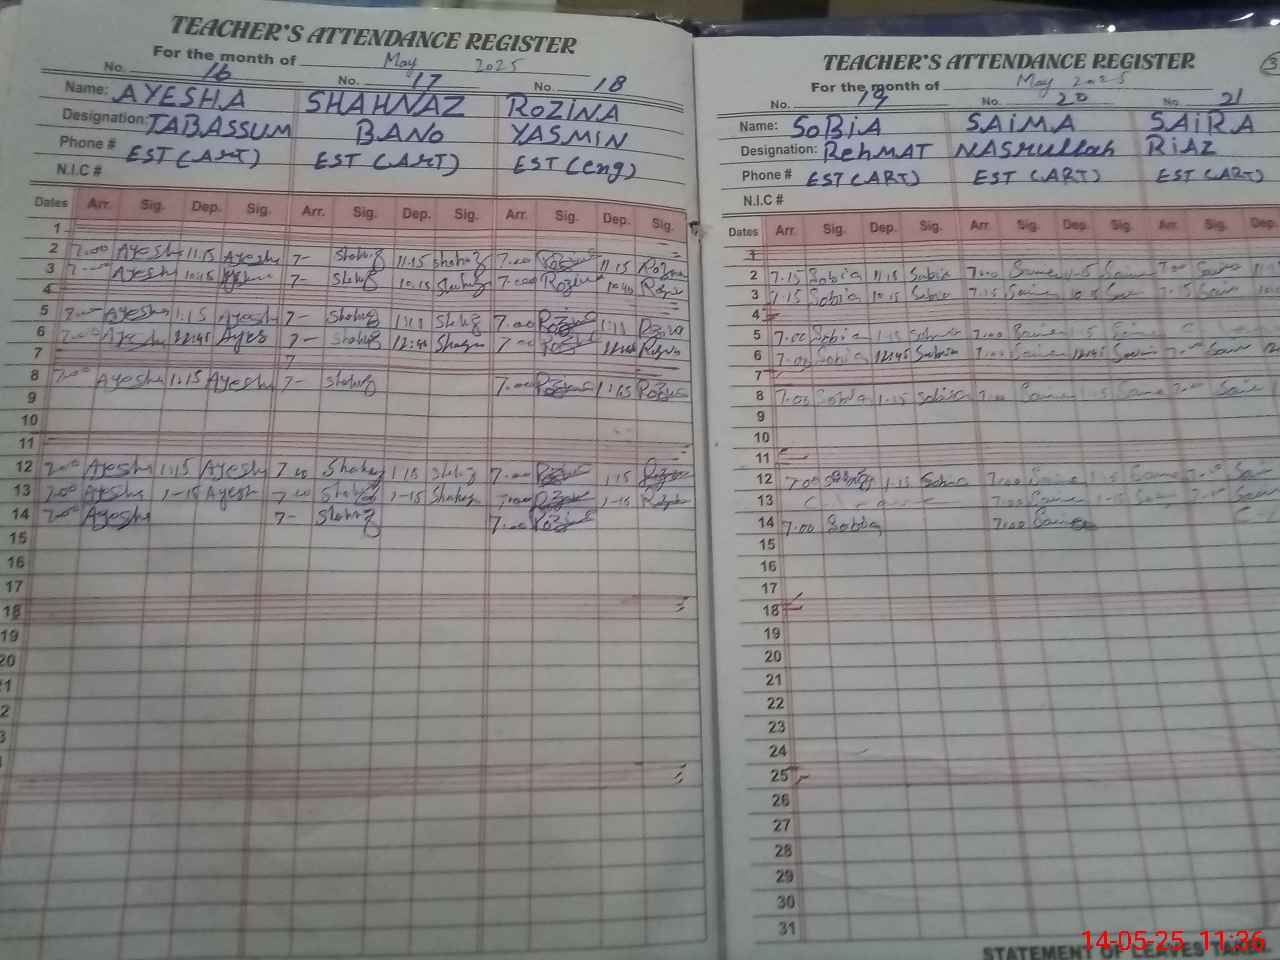 TEACHER'S ATTENDANCE REGISTER
For the month of May 2025
No. 16 No. 17 No. 18
Name: AYESHA SHAHNAZ ROZINA
Designation: TABASSUM BANO YASMIN
Phone # EST (ART) EST (ART) EST (eng)
N.I.C #
Dates Arr. Sig. Dep. Sig. Arr. Sig. Dep. Sig. Arr. Sig. Dep. Sig.
1
2 7.00 Ayesha 11.15 Ayesha 7- Shahnaz 11.15 Shahnaz 7.00 Rozina 11.15 Rozina
3 Ayesha 10.15 7- Shahnaz 10.15 Shahnaz 7.00 Rozina Rozina
4
5 7.00 Ayesha 1.15 Ayesha 7- Shahnaz Shahnaz 7.00 Rozina Rozina
6 7.00 Ayesha 12:45 Ayes 7- Shahnaz 7.00 Rozina
7 7
8 7.00 Ayesha 1.15 Ayesha 7- Shahnaz 7.00 Rozina 1.15 Rozina
9
10
11
12 7.00 Ayesha 1.15 Ayesha 7.00 Shahnaz 1.15 Shahnaz 7.00 Rozina 1.15 Rozina
13 7.00 Ayesha 1-15 Ayesha 7.00 Shahnaz 1-15 Shahnaz 7.00 Rozina 1-15 Rozina
14 7.00 Ayesha 7- Shahnaz 7.00 Rozina
15
16
17
18
19
20
TEACHER'S ATTENDANCE REGISTER
3
For the month of May 2025
No. 19 No. 20 No. 21
Name: SOBIA SAIMA SAIRA
Designation: RehMAT NASRullah RIAZ
Phone # EST (ART) EST (ART) EST (ART)
N.I.C #
Dates Arr. Sig. Dep. Sig. Arr. Sig. Dep. Sig. Arr. Sig. Dep.
1
2 7.15 Sobia 11.15 Sobia 7.00 Saima Saima 7.00 Saira
3 7.15 Sobia 10.15 Sobia 7.15 Saima Saima Saira
4
5 7.00 Sobia 1.15 Sobia 7.00 Saima Saima
6 7.00 Sobia 12:45 Sobia 7.00 Saima 12:45 Saima 7.00 Saira
7
8 7.00 Sobia 1.15 Sobia 7.00 Saima 1.15 Saima 7.00 Saira
9
10
11
12 7.00 Sobia 1.15 Sobia 7.00 Saima 1.15 Saima 7.00 Saira
13 7.00 Saima 1-15 Saima 7.00 Saira
14 7.00 Sobia 7.00 Saima
15
16
17
18
19
20
21
22
23
24
25
26
27
28
29
30
31
STATEMENT OF LEAVES
14-05-25 11:36